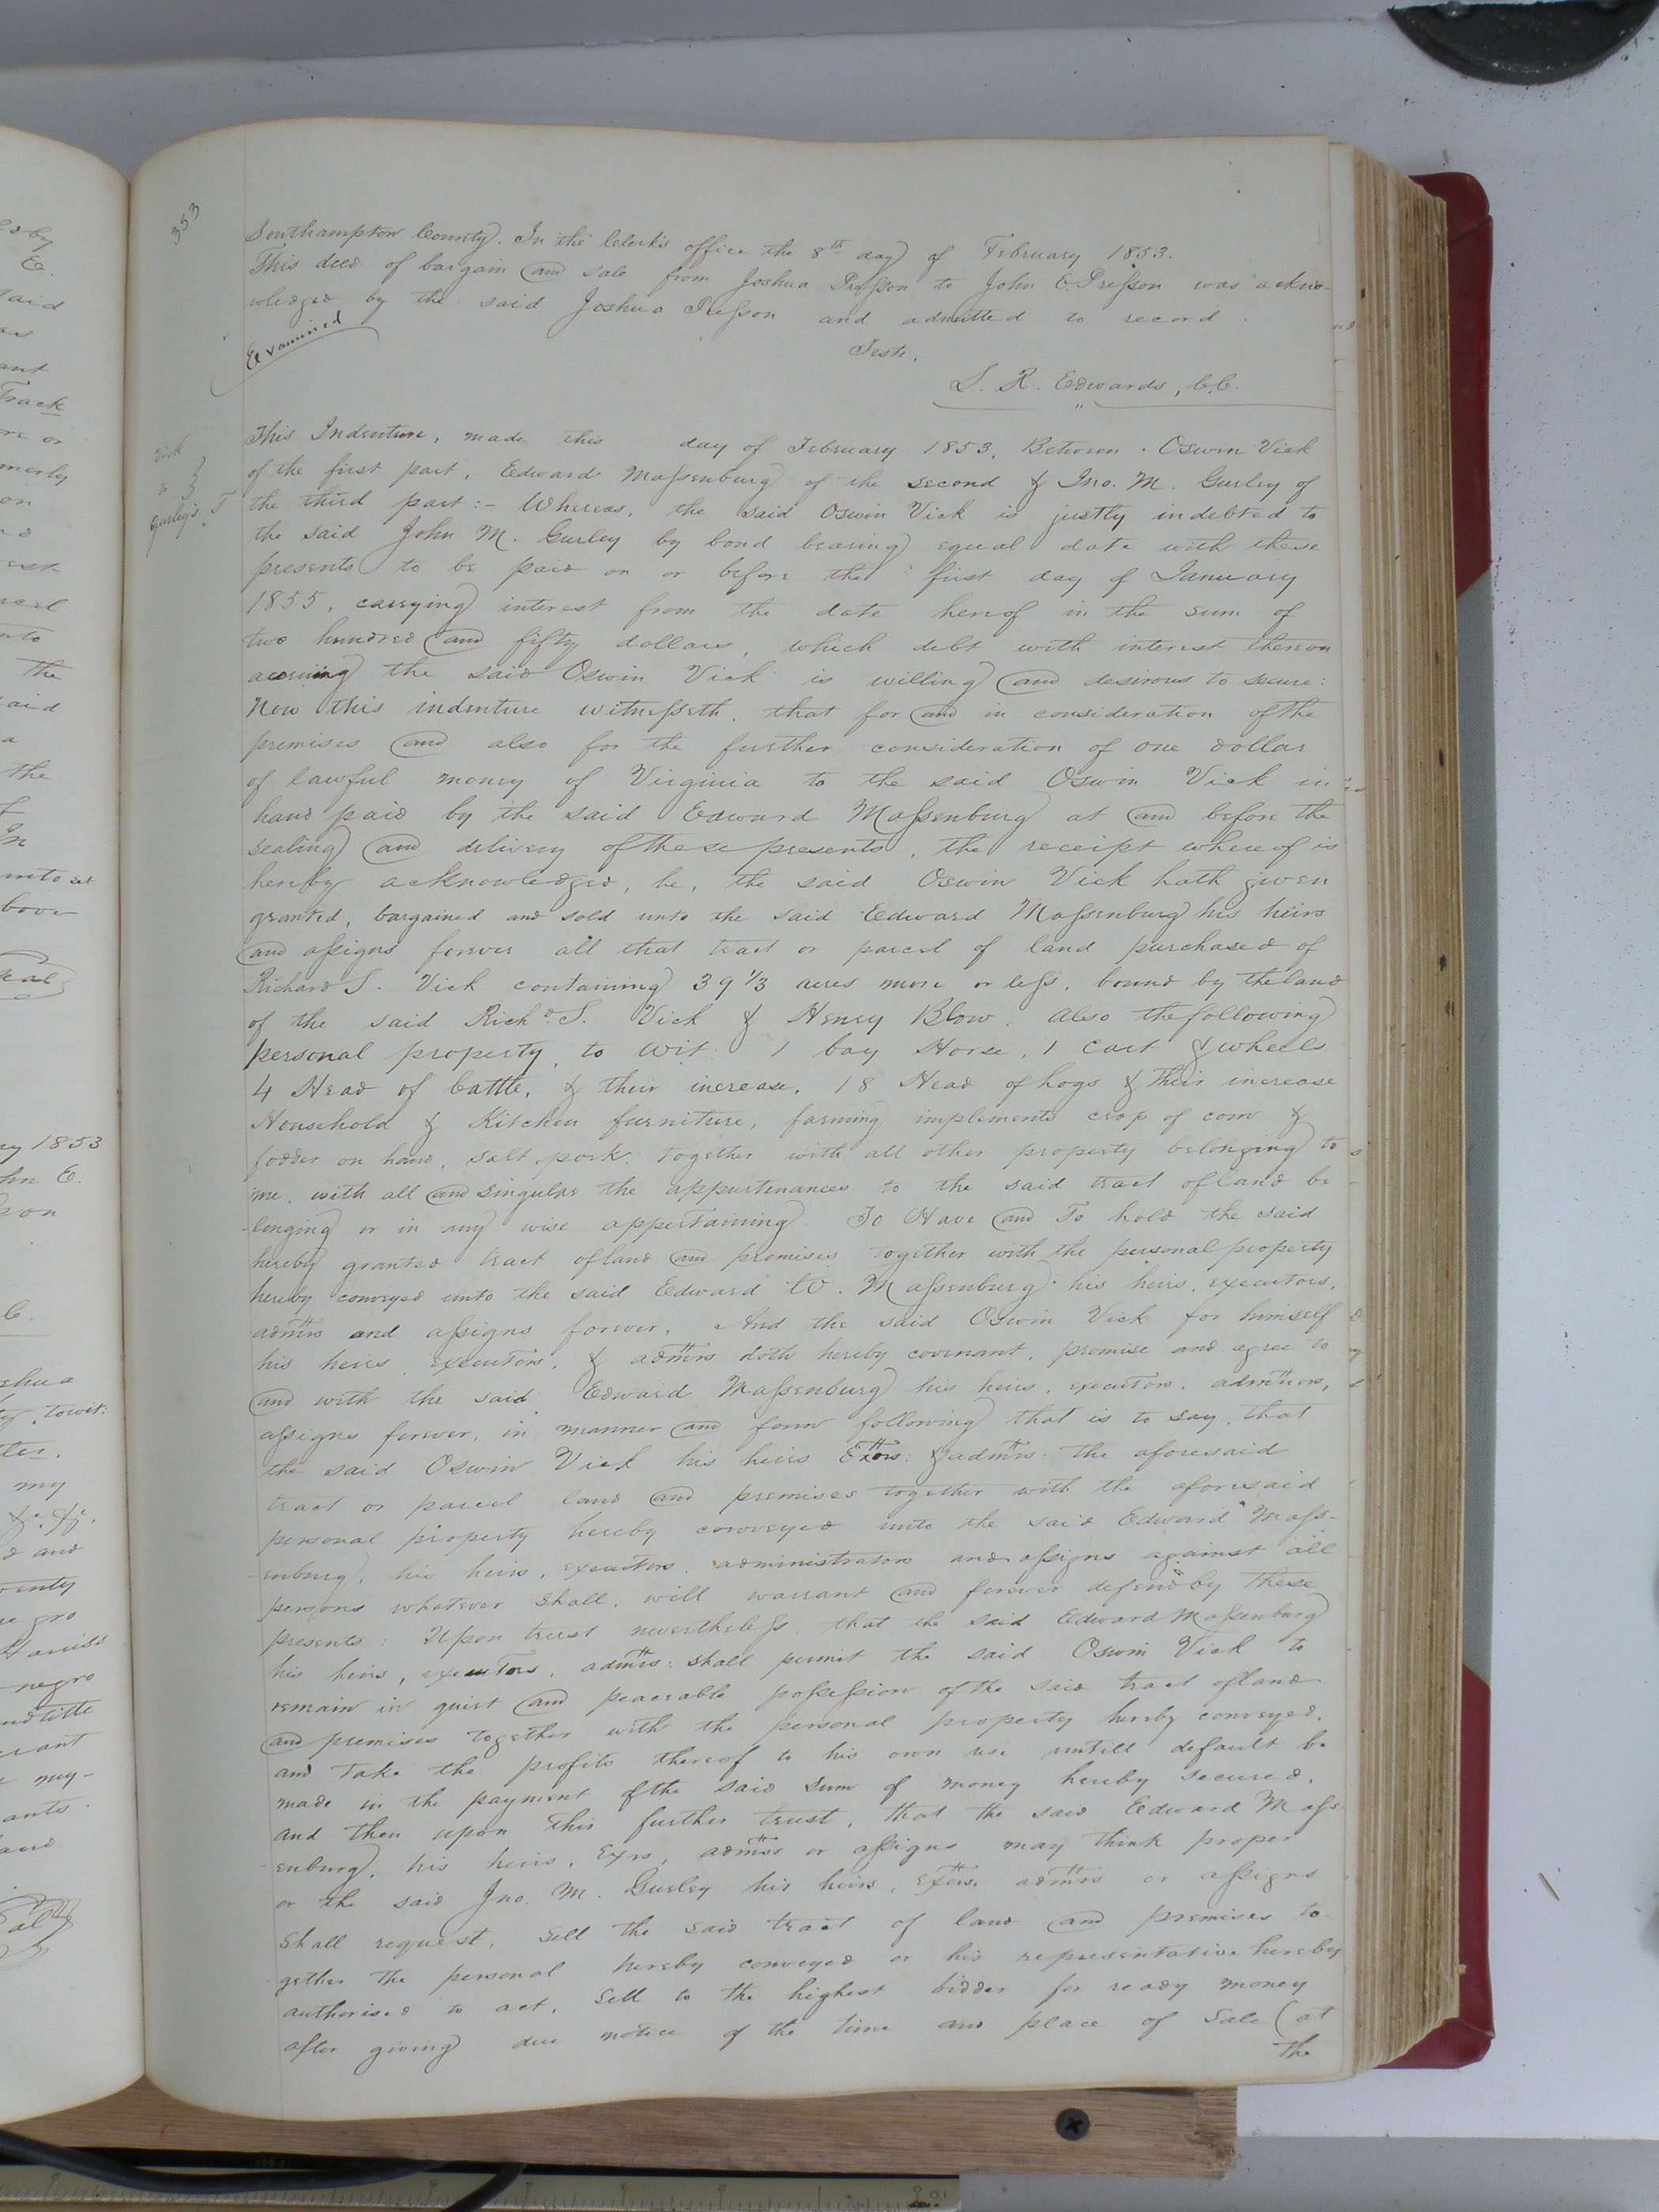 353
Southampton County. In the Clerk's office the 8th day of February 1853.
This deed of bargain and sale from Joshua Presson to John E Presson was ackno-
wledged by the said Joshua Presson and admitted to record.
Examined
Teste,
L. R. Edwards, C.C.
Vick
to }
Gurley's T
This Indenture, made this day of February 1853, Between Oswin Vick
of the first part, Edward Massenburg of the second & Jno. M. Gurley of
the third part:- Whereas, the said Oswin Vick is justly indebted to
the said John M. Gurley by bond bearing equal date with these
presents to be paid on or before the first day of January
1855, carrying interest from the date hereof in the sum of
two hundred and fifty dollars, which debt with interest thereon
accruing the said Oswin Vick is willing and desirous to secure:
Now this indenture witnesseth, that for and in consideration of the
premises and also for the further consideration of one dollar
of lawful money of Virginia to the said Oswin Vick in
hand paid by the said Edward Massenburg at and before the
sealing and delivery of these presents, the receipt whereof is
hereby acknowledged, he, the said Oswin Vick hath given
granted, bargained and sold unto the said Edward Massenburg his heirs
and assigns forever all that tract or parcel of land purchased of
Richard S. Vick containing 39 1/3 acres more or less, bound by the land
of the said Richd. S. Vick & Henry Blow. Also the following
personal property, to wit: 1 bay Horse, 1 cart & wheels
4 Head of Cattle, & their increase, 18 Head of hogs & their increase
Household & Kitchen furniture, farming implements crop of corn &
fodder on hand, salt pork, together with all other property belonging to
me, with all and singular the appurtenances to the said tract of land be
-longing or in any wise appertaining. To Have and To hold the said
hereby granted tract of land and premises together with the personal property
hereby conveyed unto the said Edward W. Massenburg his heirs, executors,
admrs and assigns forever, And the said Oswin Vick for himself
his heirs executors, & admrs doth hereby covenant, promise and agree to
and with the said Edward Massenburg his heirs, executors, admors,
assigns forever, in manner and form following that is to say, that
the said Oswin Vick his heirs Exors: & admrs: the aforesaid
tract or parcel land and premises together with the aforesaid
personal property hereby conveyed unto the said Edward Mass-
-enburg, his heirs, executors, administrators and assigns against all
persons whatever shall, will warrant and forever defend by these
presents: Upon trust nevertheless that the said Edward Massenburg
his heirs, executors, admrs: shall permit the said Oswin Vick to
remain in quiet and peaceable possession of the said tract of land
and premises together with the personal property hereby conveyed,
and take the profits thereof to his own use untill default be
made in the payment of the said sum of money hereby secured,
and then upon this further trust, that the said Edward Mass
-enburg, his heirs, Exrs, admrs or assigns may think proper
or the said Jno. M. Gurley his heirs, Exors. admrs or assigns
shall request, sell the said tract of land and premises to-
gether the personal hereby conveyed or his representative hereby
authorised to act, sell to the highest bidder for ready money
after giving due notice of the time and place of sale (at
the